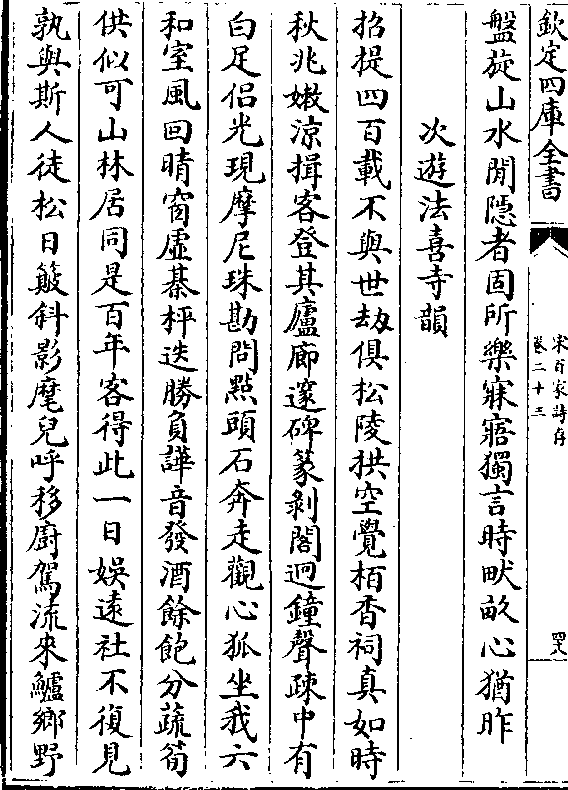 欽定四庫全書
宋百家詩存
卷二十三
四六
盤旋山水間隱者固所樂寐寤獨言時畎畝心猶昨
次遊法喜寺韻
招提四百載不與世劫俱松陵拱空覺栢香祠真如時
秋兆嫩涼揖客登其廬廊邃碑篆剝閣迥鐘聲疎中有
白足侣光現摩尼珠勘問㸃頭石奔走觀心狐坐我六
和室風回晴窗虛棊枰迭勝負譁音發酒餘飽分蔬筍
供似可山林居同是百年客得此一日娱遠社不復見
孰與斯人徒松日簸斜影麾兒呼移廚駕流來鱸鄉野